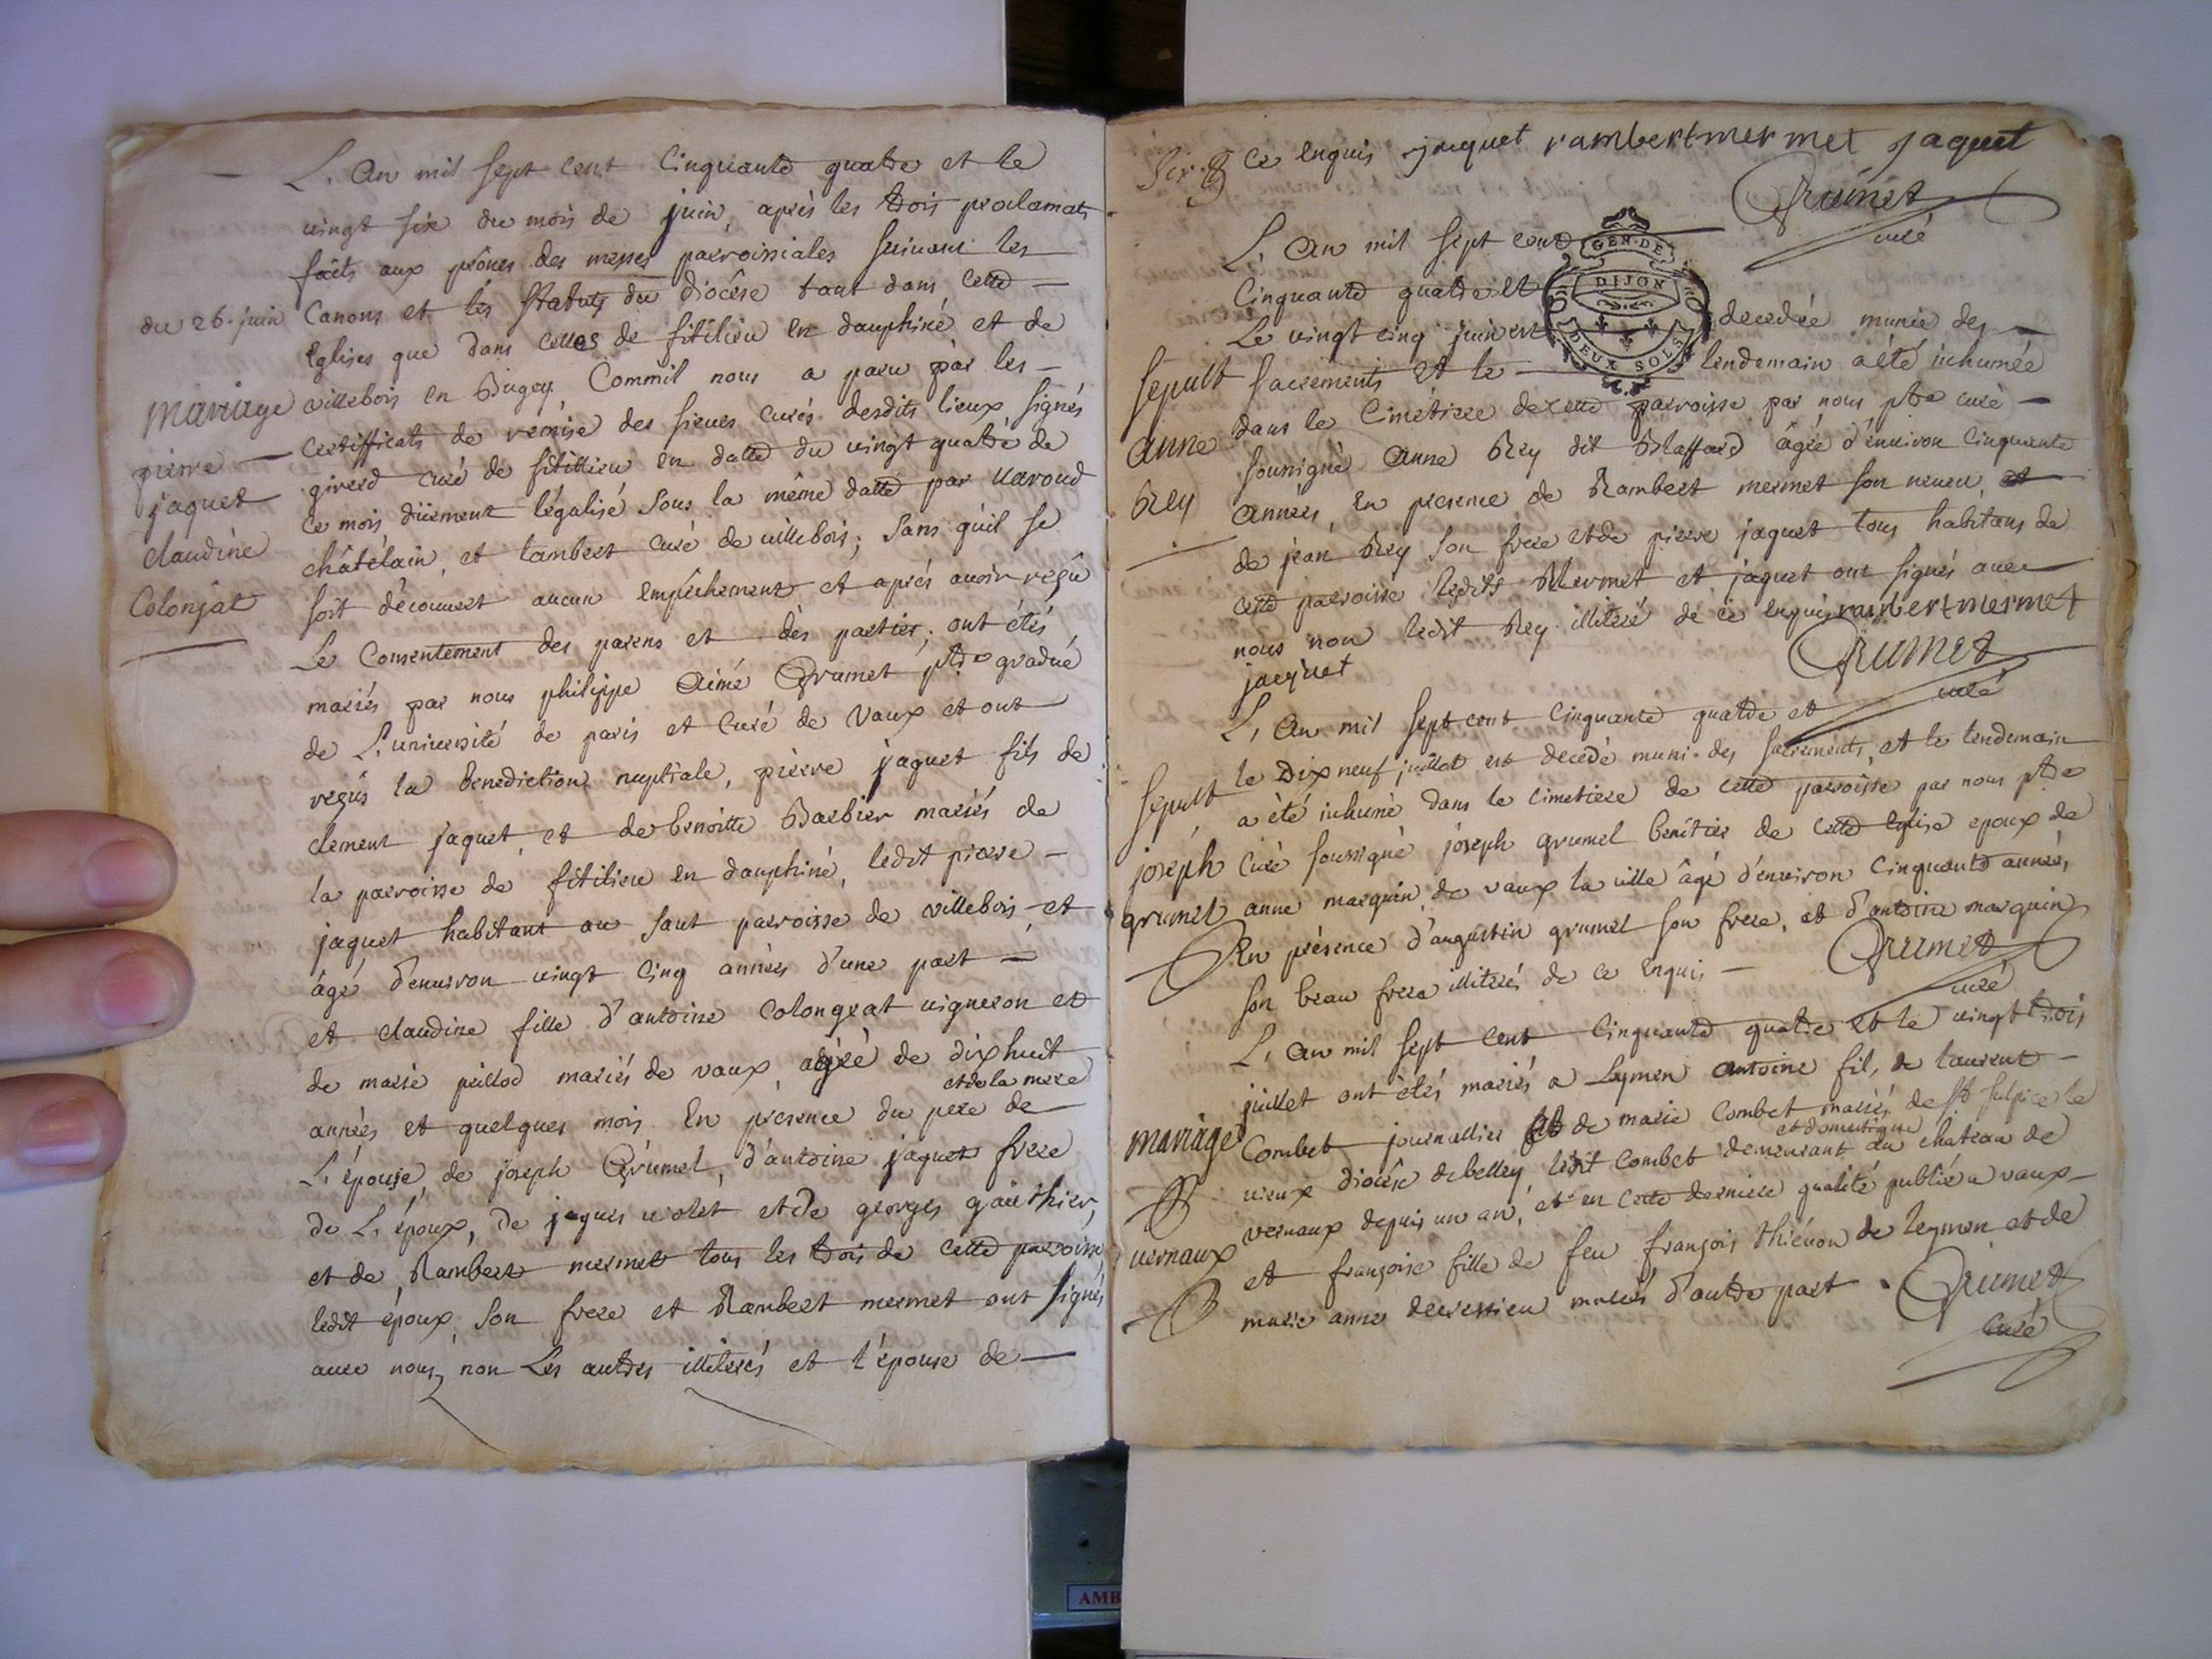 L'an mil sept cent Cinquante quatre et le
vingt six du mois de juin, après les trois proclamats
faits aux prônes des messes parroissiales suivant les
du 26. juin Canons et les statuts du diocèse tant dans cette
Eglises que dans celles de fitilieu en dauphiné et de
mariage villebois en Bugey, Commil nous a paru par les
pierre certifficats de remise des sieurs curés desdits lieux signés
girerd curé de fitillieu en datte du vingt quatre de
jaquet ce mois dûement légalisé sous la même datte par
claudine châtelain, et lambert curé de villebois; sans qu'il se
Colonjat soit découvert aucun empêchement et après avoir reçû
Le Consentement des parens et dès parties, ont étés
mariés par nous philippe Aimé Grumet ptre gradué
de L'université de paris et Curé de Vaux et ont
reçûs la benediction nuptiale, pierre jaquet fils de
clement jaquet, et de benoitte Barbier mariés de
la parroisse de fitilieu en dauphiné, ledit pierre
jaquet habitant au saut parroisse de villebois et
âgé d'environ vingt cinq années d'une part
et claudine fille d'antoine Colongeat vigneron et
de marie maries de vaux, agée de dix huit
et de la mere
années et quelques mois. En presence du pere de
L'épouse de joseph Grumel, d'antoine jaquet frere
de L'époux, de jaques violet et de georges gauthier,
et de Rambert mermet tous les trois de cette parroisse
ledit époux, son frere et Rambert mermet ont signés
avec nous, non Les autres illiterés et l'épouse de
Six ce enquis jaquet rambert mermet Jaquet
Grumet
curé
L'An mil sept cent
GEN. DE
DIJON
DEUX SOLS
Cinquante quatre et
Le vingt cinq juin est decedée munie des
sepult sacrements et le lendemain a été inhumée
dans le Cimetiere de cette parroisse par nous ptre curé
anne soussigné Anne Rey dit Blaffard âgée d'environ Cinquante
Rey Années, En presence de Rambert mermet son neveu, et
de jean Rey son frere et de pierre jaquet tous habitans de
cette parroisse lesdits Mermet et jaquet ont signés avec
nous non ledit Rey illiteré de ce enquis rambert mermet
jacquet
Grumet
curé
L'An mil sept cent Cinquante quatre et
le Dix neuf juillet est decedé muni des sacrements, et le lendemain
sepult a été inhumé dans le cimetiere de cette parroisse par nous ptre
joseph Curé soussigné joseph grumel benitier de cette Eglise epoux de
grumel anne marquin de vaux la ville âgé d'environ Cinquante années,
En présence d'augustin grumel son frere, et d'antoine marquin
son beau frere illiterés de ce enquis
Grumet
curé
L'An mil sept Cent Cinquante quatre et le vingt trois
juillet ont étés mariés a Leymen antoine fils de laurent
mariage Combet journallier et de marie Combet mariés de St sulpice le
et domestique
vieux diocèse de belley ledit combet demeurant au chateau de
vernaux depuis un an, et en cette derniere qualité publié a vaux
vernaux et françoise fille de feu françois thiénon de leymen et de
marie anne mariés d'autre part.
Grumet
Curé
AMB